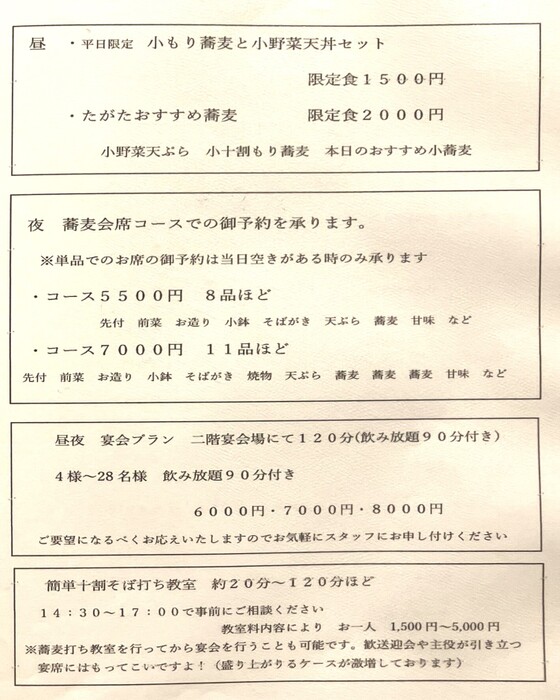 昼　・平日限定　小もり蕎麦と小野菜天丼セット
限定食１５００円
・たがたおすすめ蕎麦　限定食２０００円
小野菜天ぷら　小十割もり蕎麦　本日のおすすめ小蕎麦
夜　蕎麦会席コースでの御予約を承ります。
※単品でのお席の御予約は当日空きがある時のみ承ります
・コース５５００円　８品ほど
先付　前菜　お造り　小鉢　そばがき　天ぷら　蕎麦　甘味　など
・コース７０００円　１１品ほど
先付　前菜　お造り　小鉢　そばがき　焼物　天ぷら　蕎麦　蕎麦　蕎麦　甘味　など
昼夜　宴会プラン　二階宴会場にて１２０分(飲み放題９０分付き)
４様～28名様　飲み放題９０分付き
６０００円・７０００円・８０００円
ご要望になるべくお応えいたしますのでお気軽にスタッフにお申し付けください
簡単十割そば打ち教室　約２０分～１２０分ほど
１４：３０～１７：００で事前にご相談ください
教室料内容により　お一人　1,500円～5,000円
※蕎麦打ち教室を行ってから宴会を行うことも可能です。歓送迎会や主役が引き立つ
宴席にはもってこいですよ！（盛り上がりるケースが激増しております）